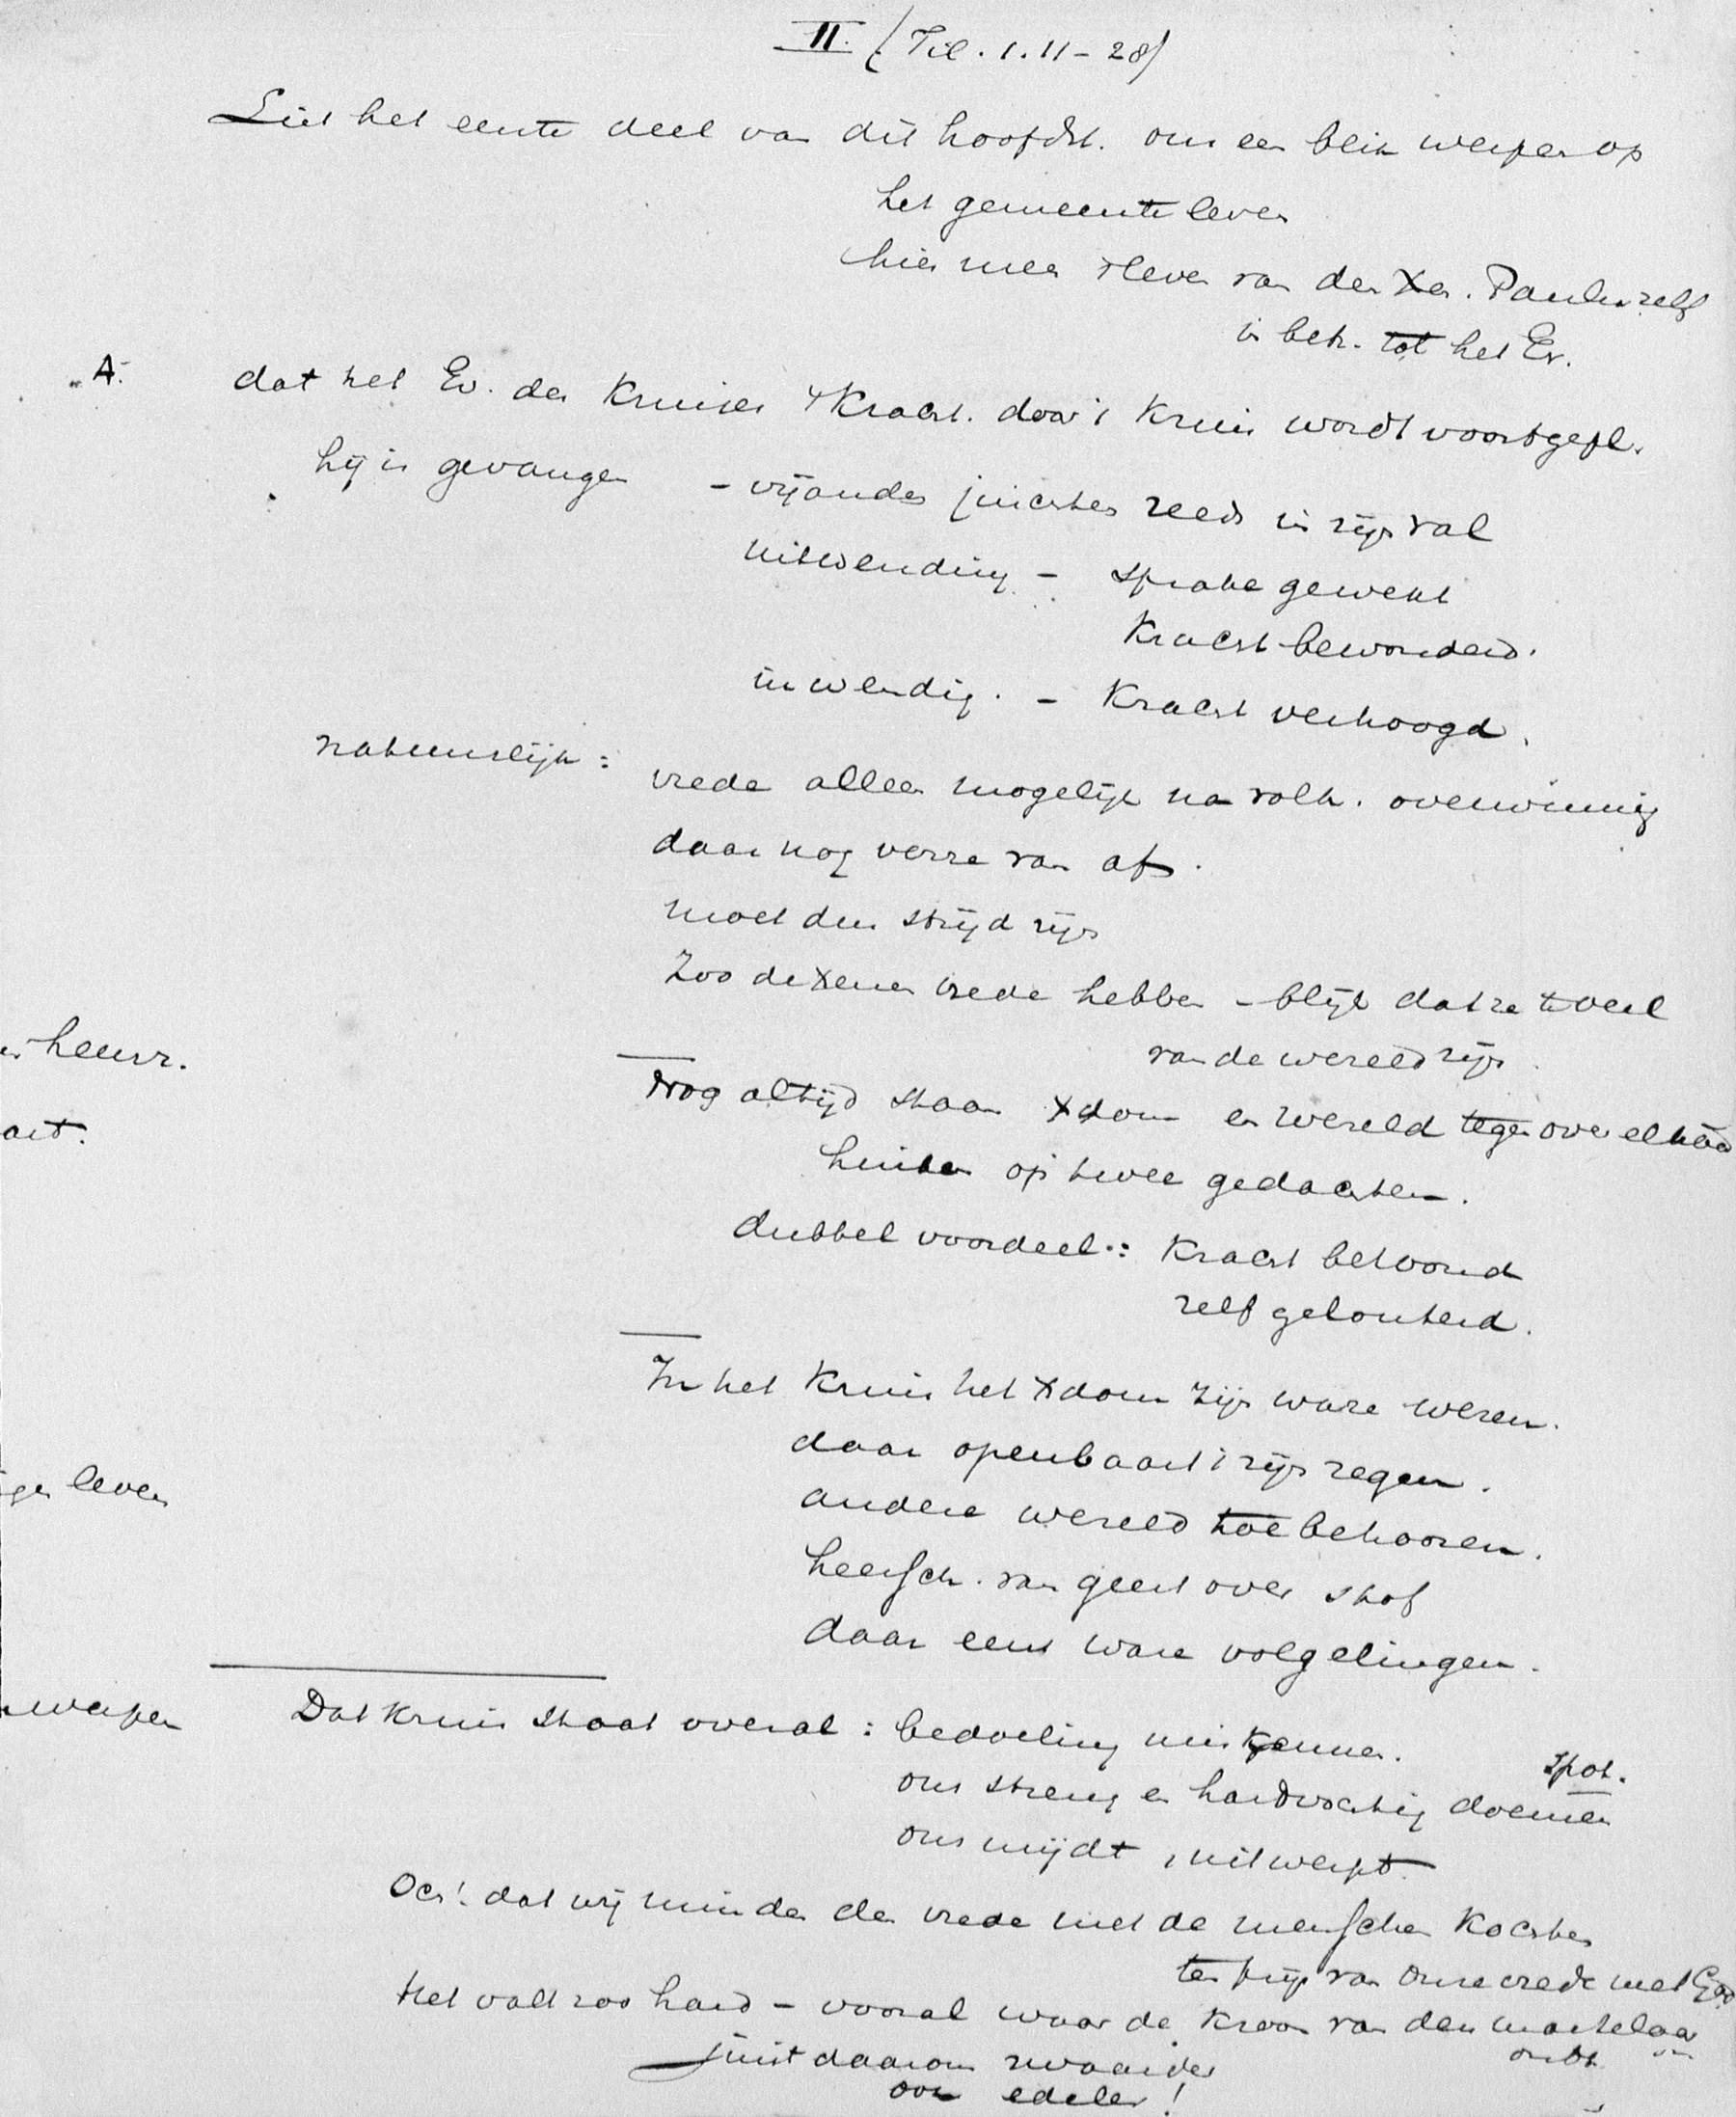 II. (Fil. 1. 11-28)
Liet het eerste deel van dit hoofdst. ons een blik werpen op
het gemeente leven
hier meer 't leven van den Xen. Paulus zelf
in betr. tot het Ev.
A. dat het Ev. des Kruises & Kracht. door 't Kruis wordt voortgepl.
hij is gevangen - vijanden juichten reeds in zijn val
uitwendig - sprake gewekt
Kracht bewonderd.
inwendig. - Kracht verhoogd.
natuurlijk: vrede alleen mogelijk na volk. overwinning
daar nog verre van af.
moet dus strijd zijn
Zoo de Xenen vrede hebben - blijk dat ze te veel
van de wereld zijn.
Nog altijd staan Xdom en wereld tegenover elkaar
hinken op twee gedachten.
dubbel voordeel: Kracht betoond
zelf gelouterd.
In het Kruis het Xdom zijn ware wezen.
daar openbaart 't zijn zegen.
andere wereld toebehooren.
heersch. van geest over stof
daar eerst ware volgelingen.
Dat Kruis staat overal: bedoeling miskennen.
spot.
ons streng en hardvochtig doemen
ons mijdt, uitwerpt
Och! dat wij minder den vrede met de menschen kochten
ten prijs van onze vrede met God
Het valt zoo hard - vooral waar de kroon van den martelaar
ontbr.
juist daarom zwaarder
ook edeler!
heerr.
art.
leven
werpen